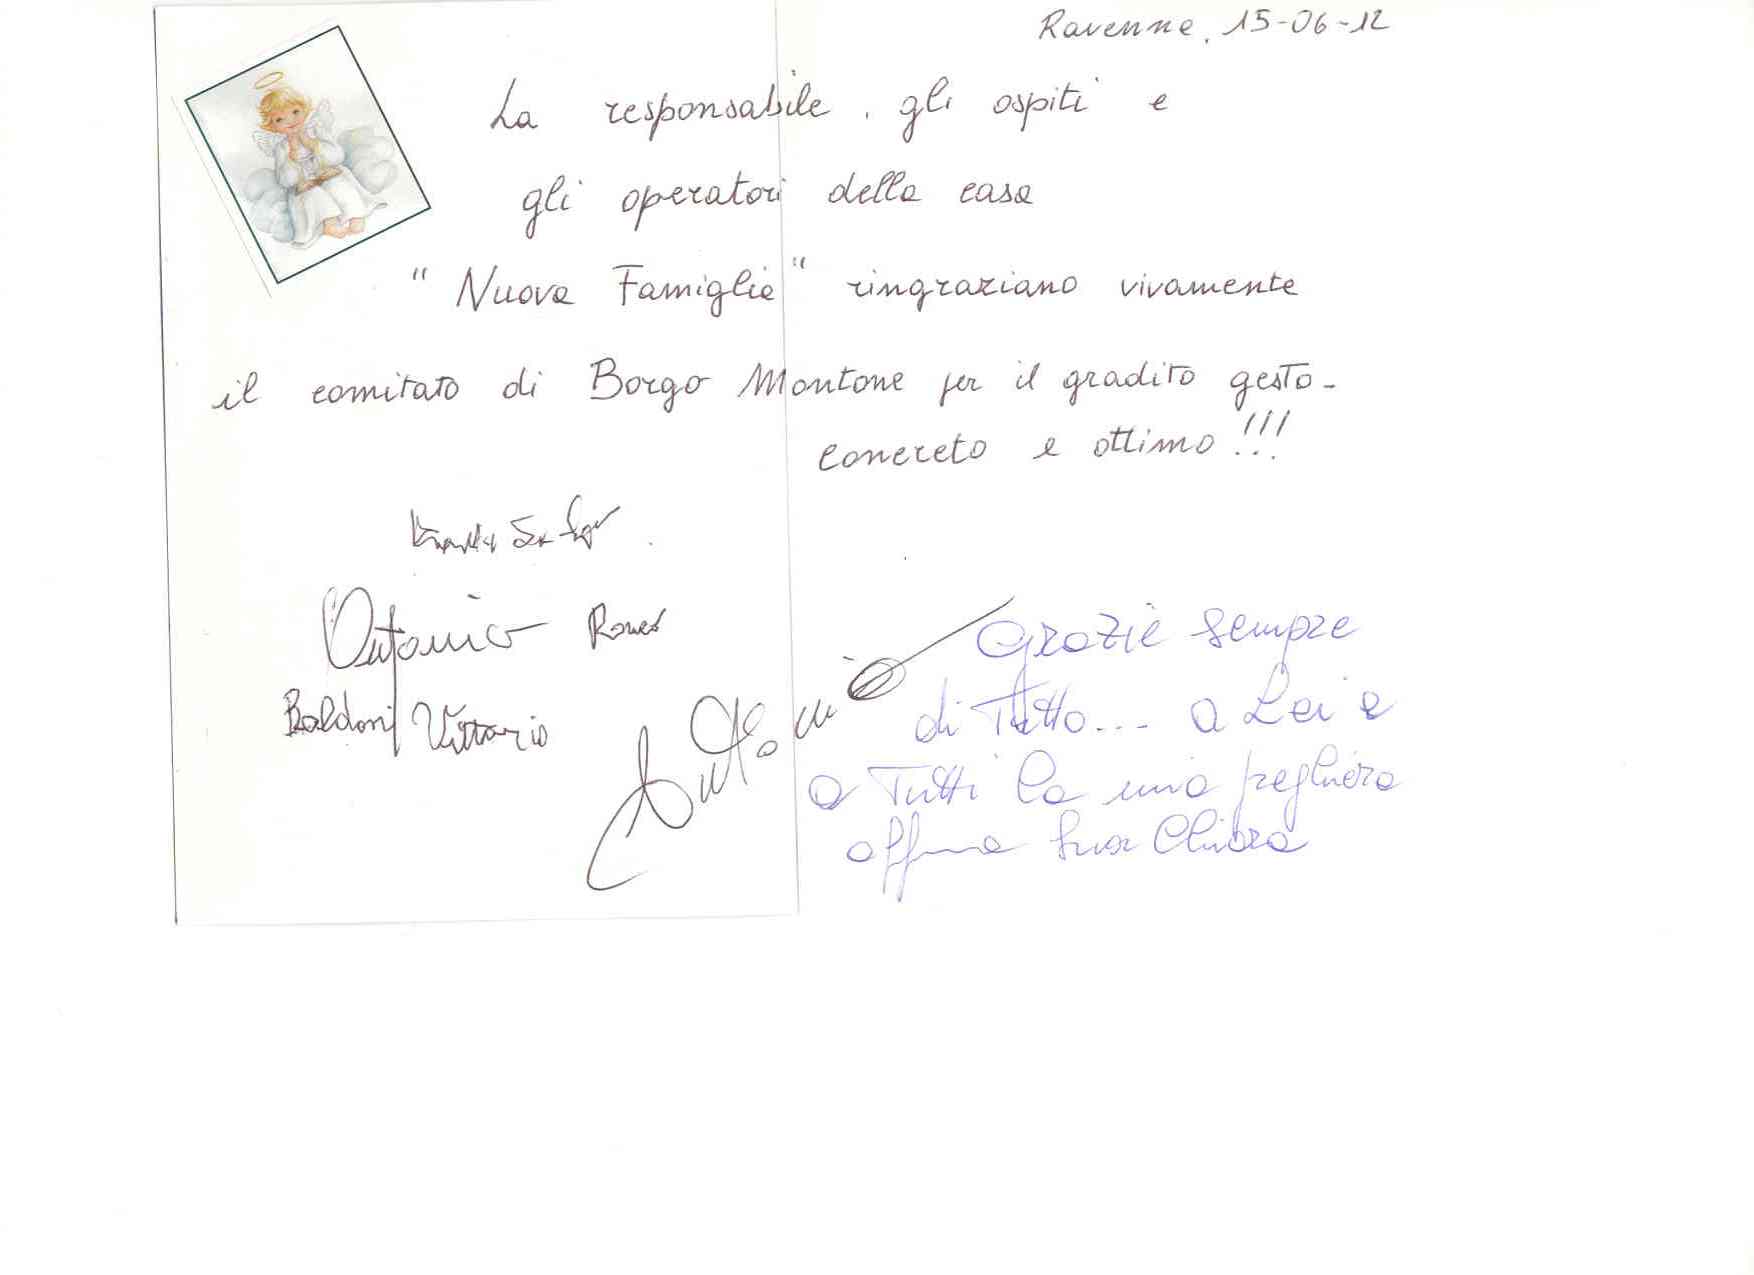 Ravenna, 15-06-12
La responsabile, gli ospiti e
gli operatori della casa
"Nuova Famiglia" ringraziano vivamente
il comitato di Borgo Montone per il gradito gesto-
concreto e ottimo!!!
Antonio Romeo
Baldoni Vittorio
Antonio
Grazie sempre
di Tutto... a Lei e
a Tutti la mia preghiera
Suor Chiara